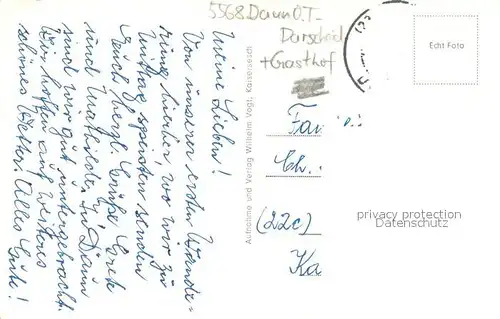 5568 Daun O.T-
Darscheid
+Gasthof
Echt Foto
Meine Lieben!
Von unserer ersten Wande-
rung hierher wo wir zu
Mittag speisten senden
Euch herzl. Grüße Grete
und Mathilde. In Daun
sind wir gut untergebracht.
Wir hoffen auf weiteres
schönes Wetter. Alles Gute!
Aufnahme und Verlag Wilhelm Vogt, Kaisersesch
Fam
Ch.
(22c)
Kö
privacy protection
Datenschutz